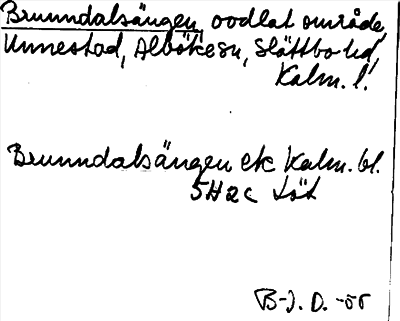 Brunndalsängen, oodlat område,
Unnestad, Alböke sn, Slättbo hd
Kalm. l.
Brunndalsängen ek Kalm. bl.
5H2c Löt
B-J. D. -55